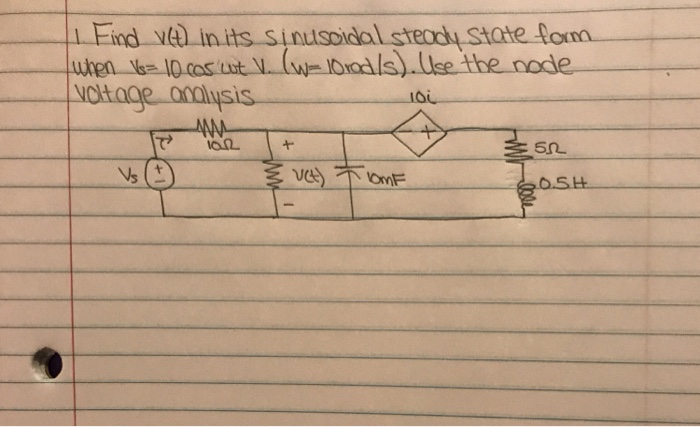 1. Find v(t) in its sinusoidal steady state form
when Vs= 10 cos wt V. (w=10rad/s). Use the node
voltage analysis
10i
i
10Ω
+
+
5Ω
Vs
+
-
v(t)
10mF
0.5H
-